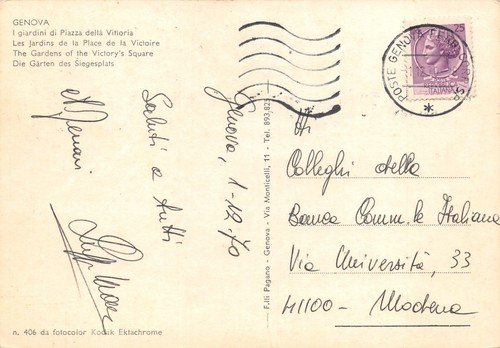 GENOVA
I giardini di Piazza della Vittoria
Les Jardins de la Place de la Victoire
The Gardens of the Victory's Square
Die Gärten des Siegesplats
Genova, 1-12-70
Saluti a tutti
n. 406 da fotocolor Kodak Ektachrome
F.lli Pagano - Genova - Via Monticelli, 11 - Tel. 893.823
POSTE GENOVA FERROVIA
ITALIANA
Ai
Colleghi della
Banca Comm.le Italiana
Via Università, 33
41100 - Modena